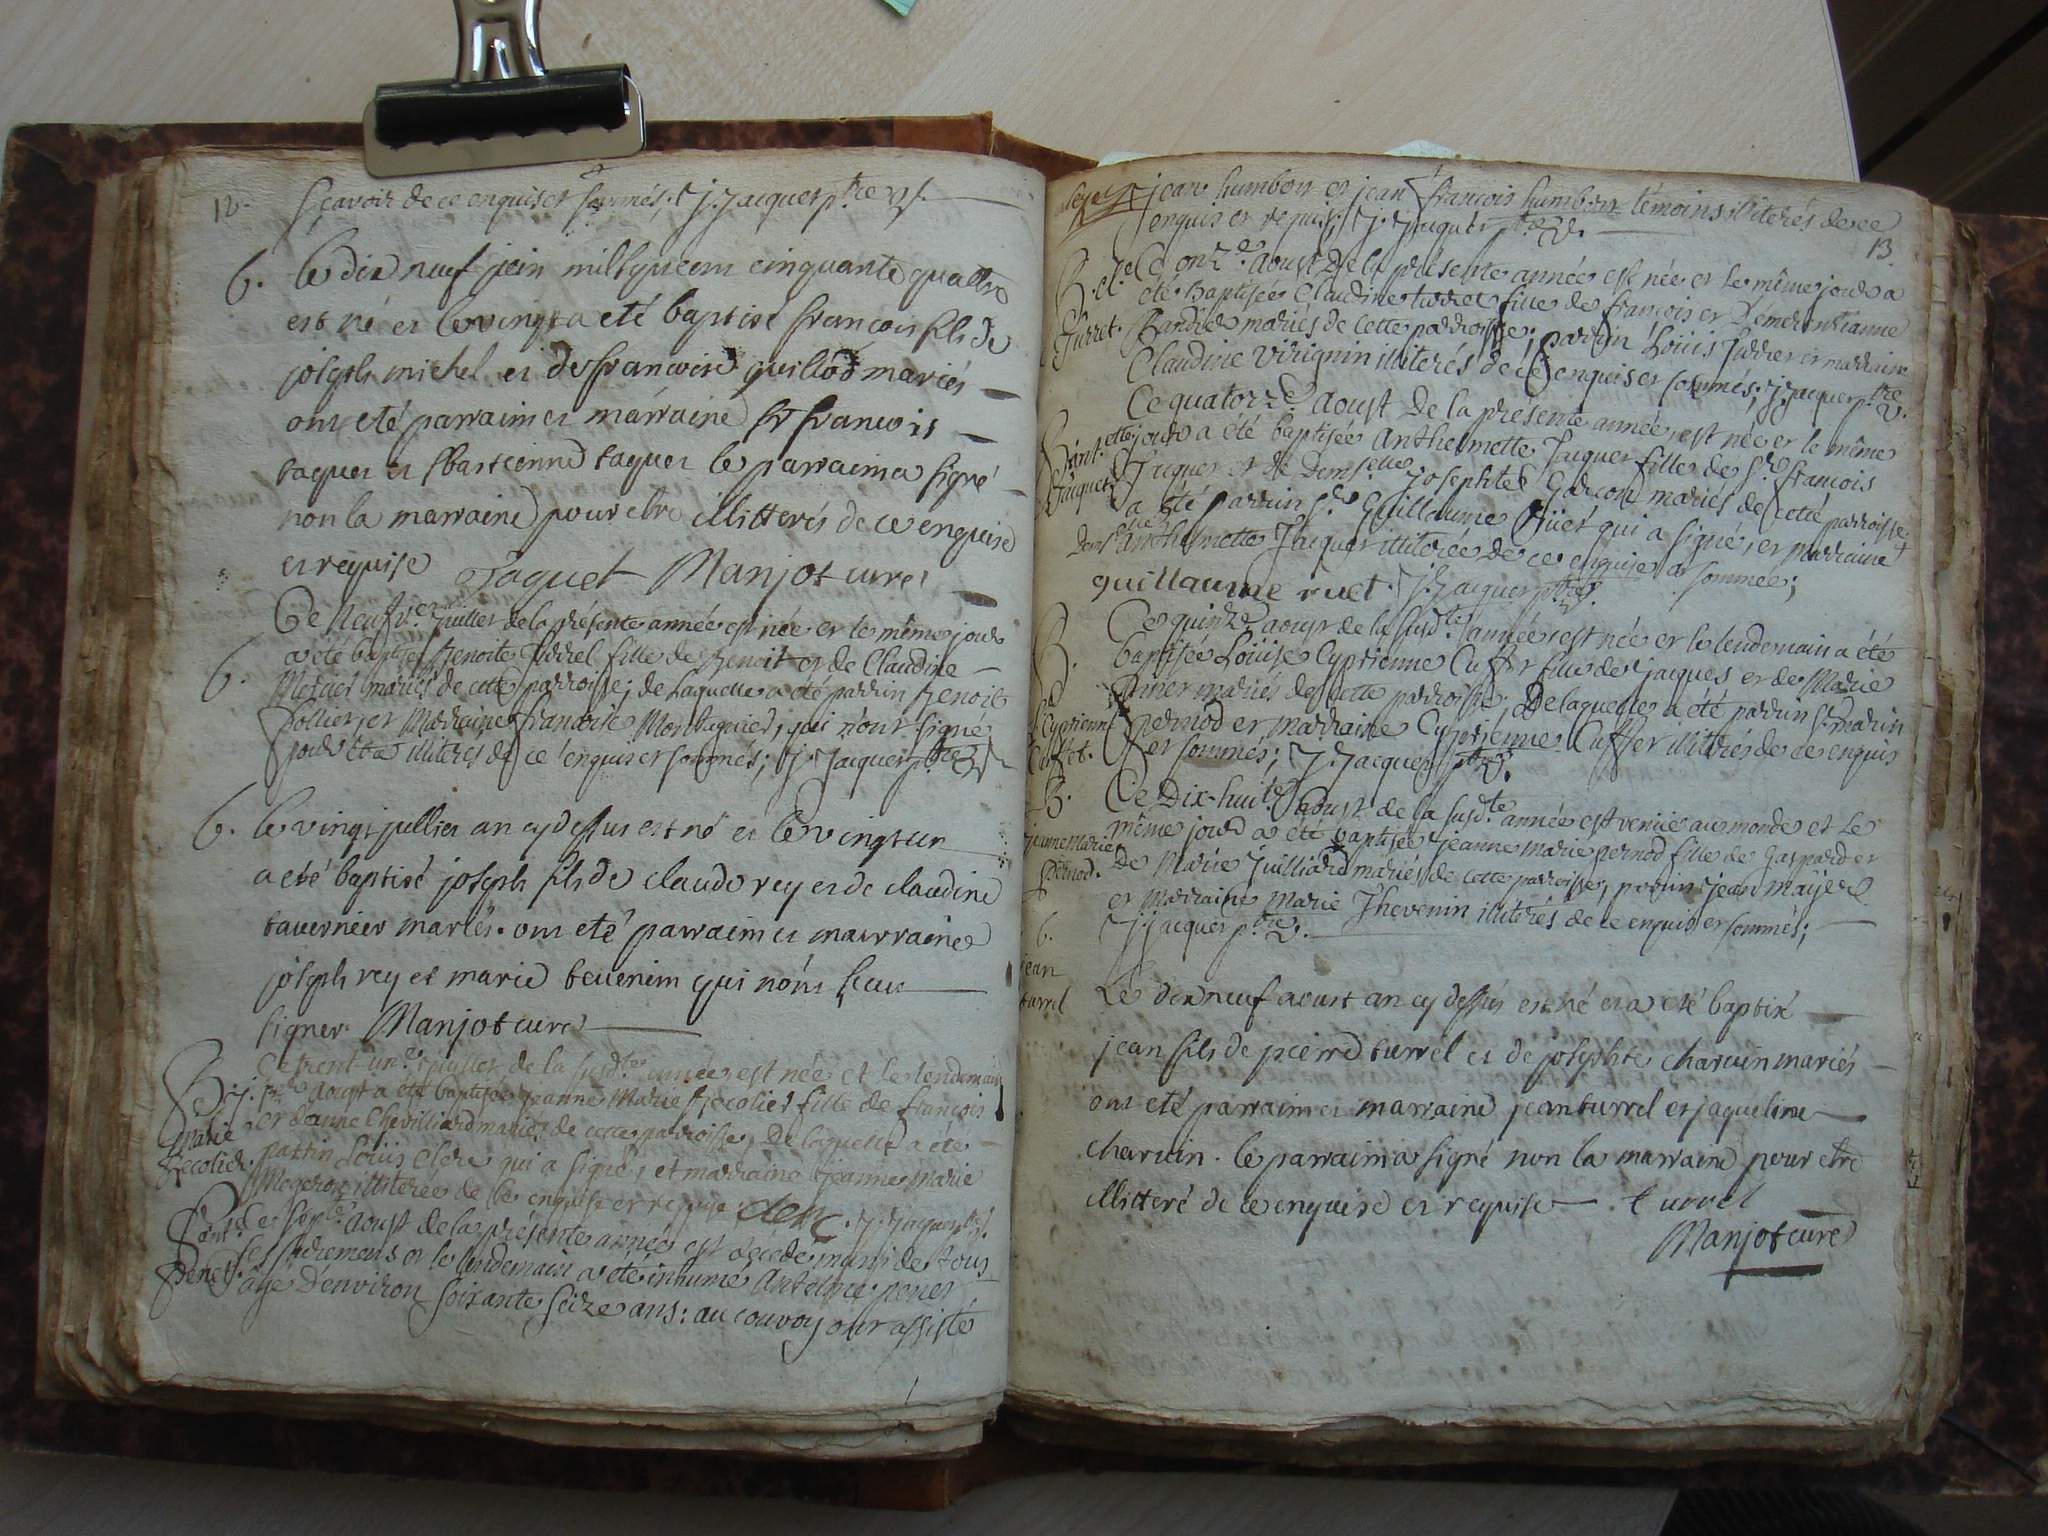 12.
sçavoir de ce enquis et sommés; J. Jacquet p.tre V.
b. le dix neuf juin mil sept cent cinquante quattre
est né et le vingt a eté baptisé francois fils de
joseph michel et de francoise guillod mariés
ont eté parrain et marraine sr francois
taquet et bastienne taquet le parrain a signé
non la marraine pour etre illitterés de ce enquise
et requise Taquet Manjot curé
Ce neufv.e Juillet de la présente année est née et le même jour
b. a été baptisée Benoite Turrel fille de Benoit et de Claudine
Mercier mariés de cette parroisse; de laquelle a été parrin Benoit
Sollier et Marraine francoise Montagnier, qui n'ont signé
pour être illiterés de ce enquis et sommés; J. Jacquet p.tre V.
b. le vingt jullier an cy dessus est né et le vingt un
a eté baptisé joseph fils de claude rey et de claudine
tavernier mariés. ont eté parrain et marraine
joseph rey et marie tevenin qui n'ont sceu
signer. Manjot curé
Ce trent-un.e juillet de la susd.te année est née et le lendemain
B. j. pr. Aoust a été baptisée jeanne Marie Recolier fille de francois
Marie et d'anne Chevilliard mariés de cette parroisse, De laquelle a été
Recolier. parrin Louis Clerc qui a signé, et marraine jeanne Marie
Mogeron illiterée de ce enquise et requise. Clerc. J. Jacquet p.tre V.
ant. Ce sept.e Aoust de la présente année est décédé muni de tous
ses sacremens et le lendemain a été inhumé Antelme penet
Penet. âgé D'environ soixante seize ans: au convoy ont assisté
jean humbert et jean françois humbert témoins illiterés de ce
enquis et requis; J. Jacquet p.tre V.
13.
B. cl. Ce onz.e Aoust De la présente année est née et le même jour a
été Baptisée Claudine turret fille de françois et D'emerentianne
Turret. Bandier mariés de cette parroisse; parrin Louis Turret et marraine
Claudine Virignin illiterés de ce enquis et sommés; J. Jacquet p.tre V.
Ce quatorz.e Aoust De la présente année, est née et le même
B. ant.ette jour a été baptisée Anthelmette Jacquet fille de S.r francois
Jacquet Jacquet et de Dem.selle Josephte Garcon mariés de cette parroisse,
a été parrin S.r Guillaume Ruet qui a signé, et Marraine
Dem.le Anthelmette Jacquet illiterée de ce enquise et sommée;
guillaume ruet. J. Jacquet p.tre V.
Ce quinz.e aoust de la susd.te année est née et le lendemain a été
B. baptisée Loüise Cyprienne Cuffet fille de jacques et de Marie
Annet mariés de cette parroisse; De laquelle a été parrin S.r marin
l. Cyprienne pernod et marraine Cyprienne Cuffet illiterés de ce enquis
Cuffet. et sommés; J. Jacquet p.tre V.
B. Ce Dix-huit.e Aoust de la susd.te année est venue au monde et Le
jeanne Marie même jour a été baptisée jeanne marie pernod fille de Gaspard et
Pernod. De Marie Juilliard mariés de cette parroisse, parrin jean Mayer
et Marraine Marie Thevenin illiterés de ce enquis et sommés;
J. jacquet p.tre V.
b.
jean
turrel Le dix neuf aoust an cy dessus est né et a eté baptisé
jean fils de pierre turrel et de josephte charvin mariés
ont eté parrain et marraine jean turrel et jaqueline
charvin. le parrain a signé non la marraine pour etre
illitteré de ce enquise et requise turrel
Manjot curé